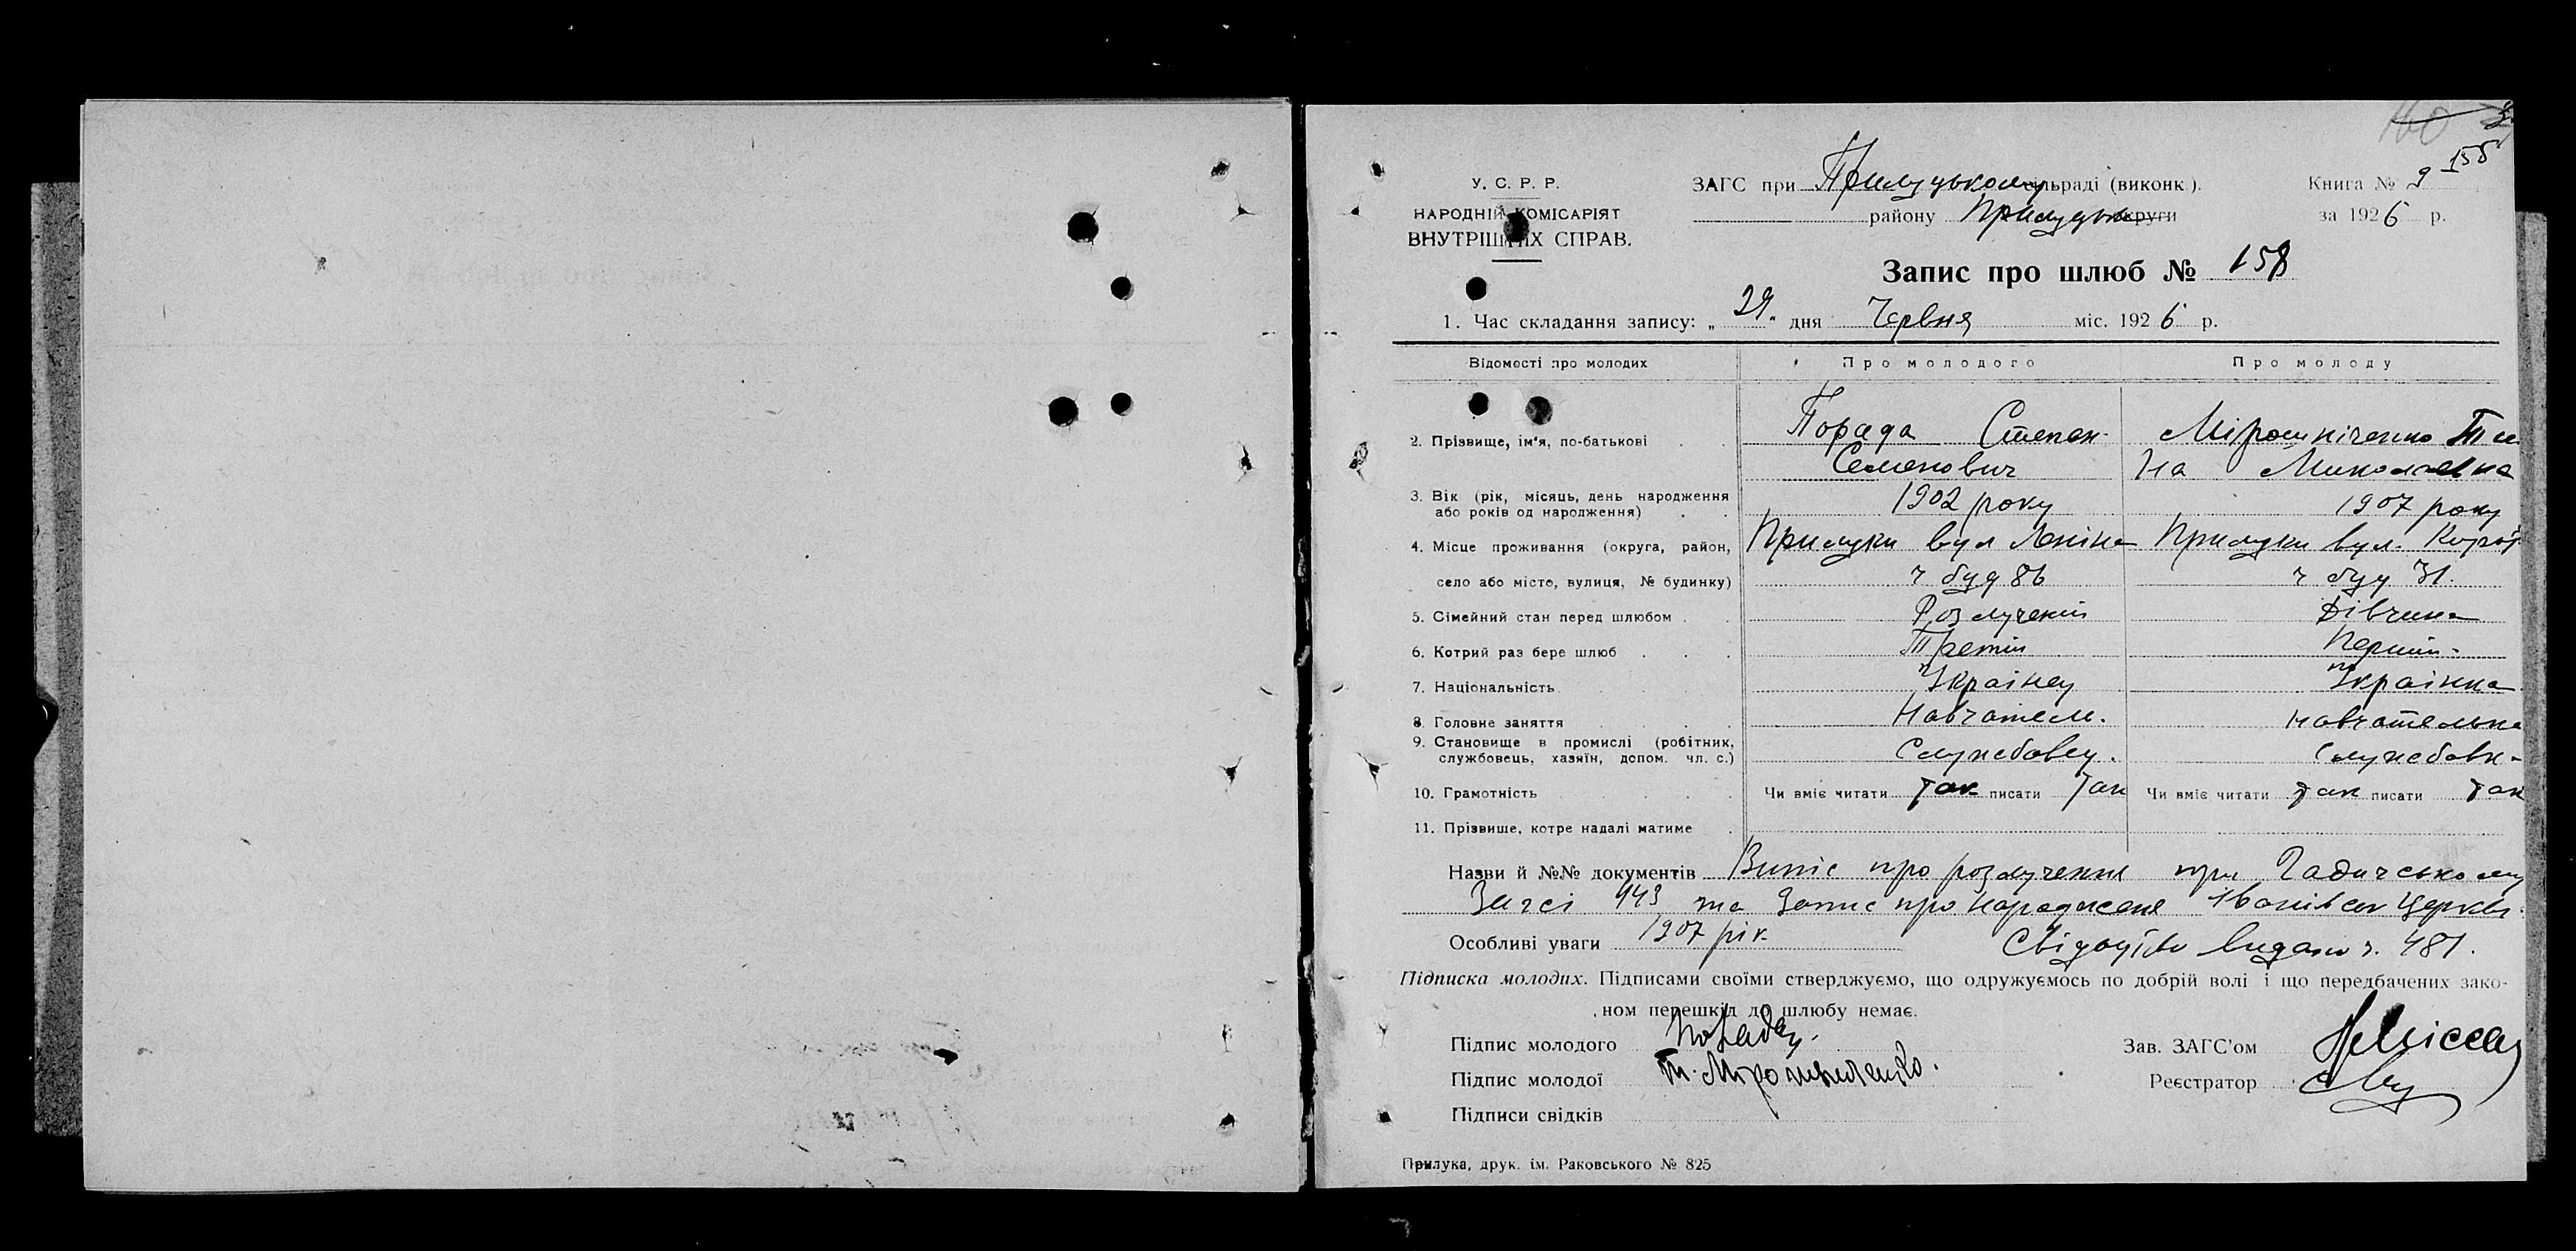 160
155
У. С. Р. Р.
НАРОДНІЙ КОМІСАРІЯТ
ВНУТРІШНІХ СПРАВ.
ЗАГС при Прилуцькому сільраді (виконк.).
району Прилуцьк округи
Книга № 9
за 1926 р.
Запис про шлюб № 158
1. Час складання запису: „ 29 " дня Червня міс. 1926 р.
Відомості про молодих Про молодого Про молоду
2. Прізвище, ім'я, по-батькові Порада Степан Мірошніченко Ти
Семенович на Миколаевна
3. Вік (рік, місяць, день народження 1902 року 1907 року
або років од народження)
4. Місце проживання (округа, район, Прилуки вул Леніна Прилуки вул.
село або місто, вулиця, № будинку) ч буд 86 ч буд 31.
5. Сімейний стан перед шлюбом Розлучений Дівчина
6. Котрий раз бере шлюб Третій Перший
7. Національність Українец Українка
8. Головне заняття Навчатель. навчателька
9. Становище в промислі (робітник, Службовец. Службовк
службовець, хазяїн, допом. чл. с.)
10. Грамотність Чи вміє читати так писати так Чи вміє читати так писати так
11. Прізвище, котре надалі матиме
Назви й №№ документів Випис про розлучення при Гадичському
Загсі 443 та Запис про народження Іванівськ церкви
Особливі уваги 1907 рік Свідоцтво видано ч. 481.
Підписка молодих. Підписами своїми стверджуємо, що одружуємось по добрій волі і що передбачених зако-
ном перешкід до шлюбу немає.
Підпис молодого
Підпис молодої Т. Мірошниченко.
Зав. ЗАГС'ом
Реєстратор
Підписи свідків
Прилука, друк. ім. Раковського № 825